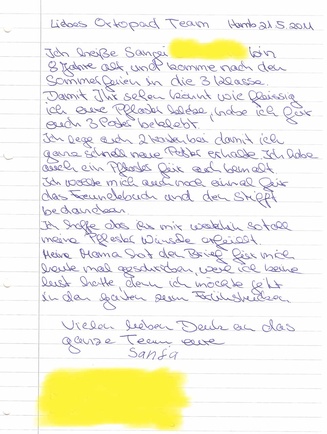 Liebes Ortopad Team Hamb 21.5.2011
Ich heiße Sanzei bin
8 Jahre alt, und komme nach den
Sommerferien in die 3 Klasse.
Damit Ihr sehen könnt wie fleissig
ich eure Pflaster klebe, habe ich für
euch 3 Poster beklebt.
Ich lege auch bei damit ich
ganz schnell neue Poster erhalte. Ich habe
auch ein Pflaster für euch bemalt
Ich wollte mich auch noch einmal für
das Freundebuch und den Stift
bedancken.
Ich hoffe das ihr mir weiterhin so toll
meine Pflaster Wünsche erfüllt.
Meine Mama hat den Brief für mich
heute mal geschrieben, weil ich keine
lust hatte, denn ich möchte jetzt
in den garten zum Frühstücken
Vielen lieben Dank an das
ganze Team eure
Sanja